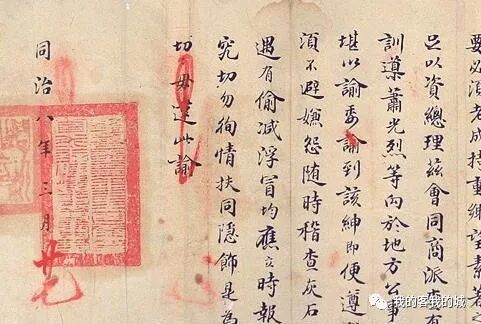 要必須老成持重鄉望素著
足以資總理茲會同商派查有
訓導蕭光烈等向於地方公事
堪以諭委諭到該紳即便遵
須不避嫌怨随時稽查灰石
遇有偷减浮冒均應立時報
究切勿徇情扶同隱飾是為
切毋違此諭
同治八年三月廿
我的客我的城